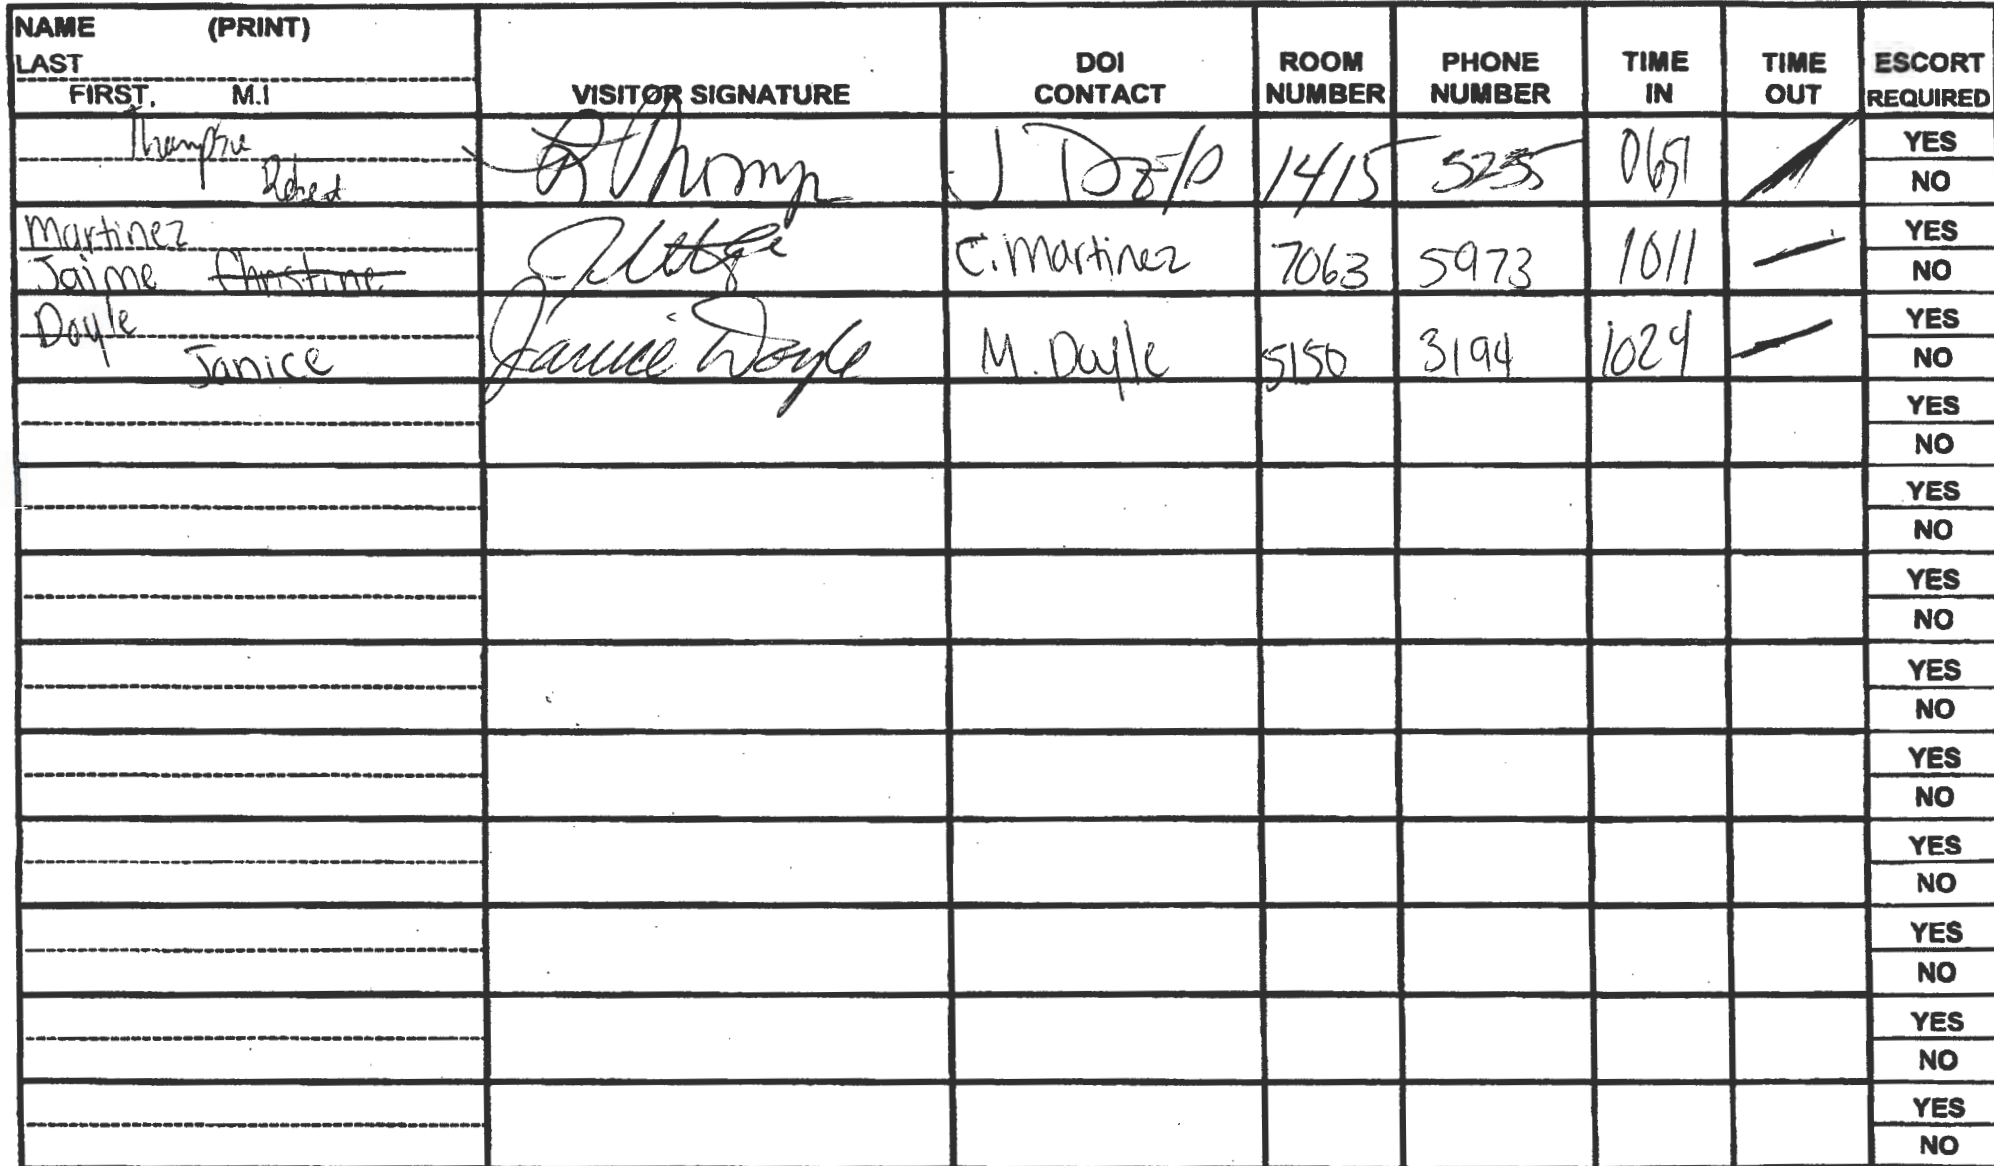 NAME (PRINT)
LAST
FIRST, M.I
VISITOR SIGNATURE
DOI CONTACT
ROOM NUMBER
PHONE NUMBER
TIME IN
TIME OUT
ESCORT REQUIRED
Robert
R Thomp
J
1415
5235
YES
NO
Martinez
Jaime Christine
C. Martinez
7063
5973
1011
YES
NO
Doyle
Janice
Janice Doyle
M. Doyle
5150
3194
1024
YES
NO
YES
NO
YES
NO
YES
NO
YES
NO
YES
NO
YES
NO
YES
NO
YES
NO
YES
NO